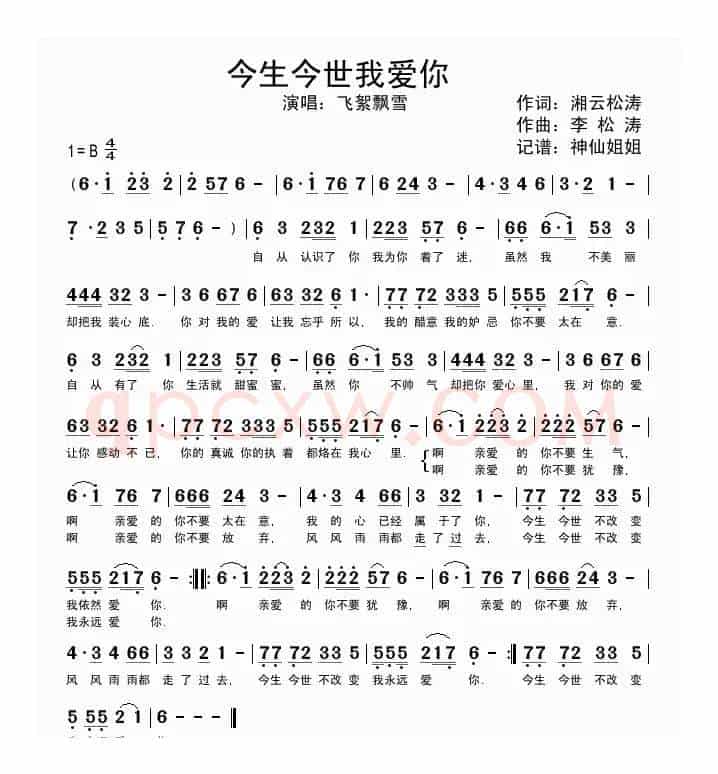 今生今世我爱你
演唱：飞絮飘雪 作词：湘云松涛
作曲：李 松 涛
1=B 4/4 记谱：神仙姐姐
(6·1 23 2 | 2 576 - | 6·1 76 7 | 6 24 3 - | 4·3 4 6 | 3·2 1 - |
7·2 3 5 | 5 7 6 - ) | 6 3 232 1 | 223 57 6 - | 66 6·1 53 3 |
自 从 认识了 你 我为你 着了 迷， 虽然 我 不美 丽
444 32 3 - | 3 6 67 6 | 63 32 6 1· | 77 72 333 5 | 555 217 6 - |
却把我 装心 底． 你 对 我的 爱 让我 忘乎 所 以， 我的 醋意 我的妒 忌 你不要 太在 意．
6 3 232 1 | 223 57 6 - | 66 6·1 53 3 | 444 32 3 - | 3 6 67 6 |
自 从 有了 你 生活就 甜蜜 蜜， 虽然 你 不帅 气 却把你 爱心 里， 我 对 你的 爱
qpcxw.COM
63 32 6 1· | 77 72 333 5 | 555 217 6 - | 6·1 223 2 | 222 57 6 - |
让你 感动 不 已， 你的 真诚 你的执 着 都烙在 我心 里． 啊 亲爱 的 你不要 生 气，
啊 亲爱 的 你不要 犹 豫，
6·1 76 7 | 666 24 3 - | 4·3 4 66 | 3 32 1 - | 77 72 33 5 |
啊 亲爱 的 你不要 太在 意， 我 的 心 已经 属 于了 你， 今生 今世 不改 变
啊 亲爱 的 你不要 放 弃， 风 风 雨 雨都 走 了过 去， 今生 今世 不改 变
555 217 6 - :||: 6·1 223 2 | 222 57 6 - | 6·1 76 7 | 666 24 3 - |
我依然 爱 你． 啊 亲爱 的 你不要 犹 豫， 啊 亲爱 的 你不要 放 弃，
我永远 爱 你．
4·3 4 66 | 3 32 1 - | 77 72 33 5 | 555 217 6 - :| 77 72 33 5 |
风 风 雨 雨都 走 了过 去， 今生 今世 不改 变 我永远 爱 你． 今生 今世 不改 变
5 555 2 1 | 6 - - - ||